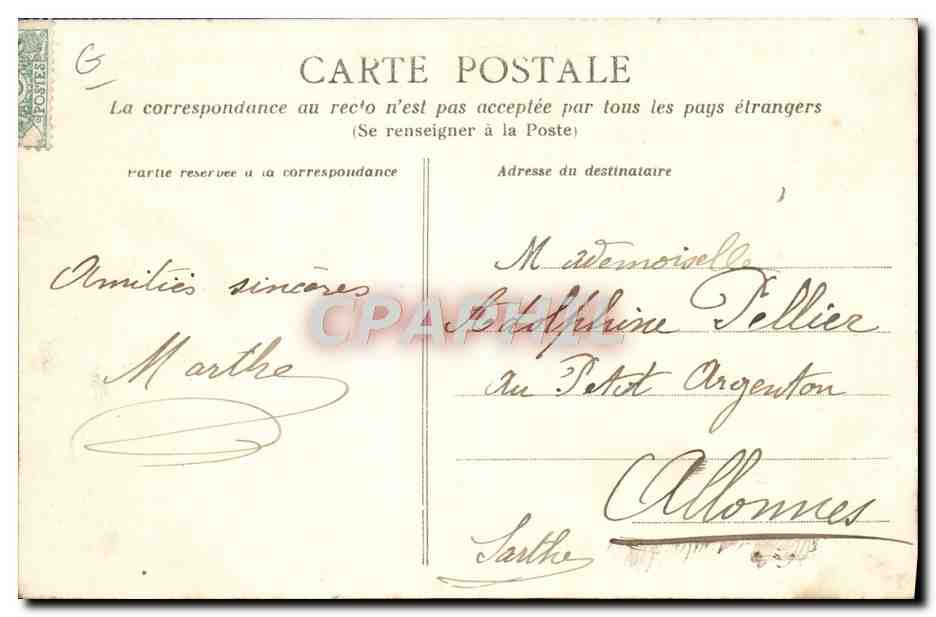 G
POSTES
CARTE POSTALE
La correspondance au recto n'est pas acceptée par tous les pays étrangers
(Se renseigner à la Poste)
Partie réservée à la correspondance
Adresse du destinataire
Amitiés sincères
Marthe
Mademoiselle
Adolphine Pellier
au Petit Argenton
Allonnes
Sarthe
CPAPHIL